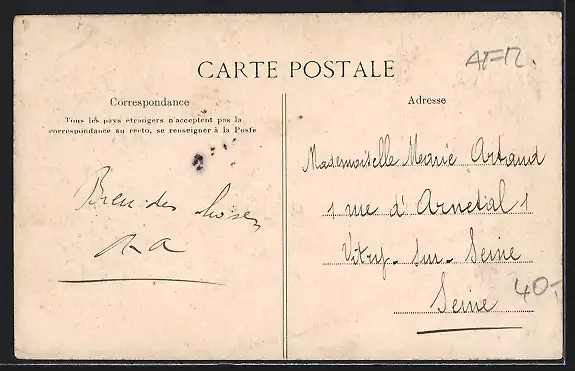 AFR.
CARTE POSTALE
Correspondance
Tous les pays étrangers n'acceptent pas la
correspondance au recto, se renseigner à la Poste
Adresse
Bien des choses
A
Mademoiselle Marie Artaud
1 rue d'Arnetal 1
Vitry-sur-Seine
Seine
40,-